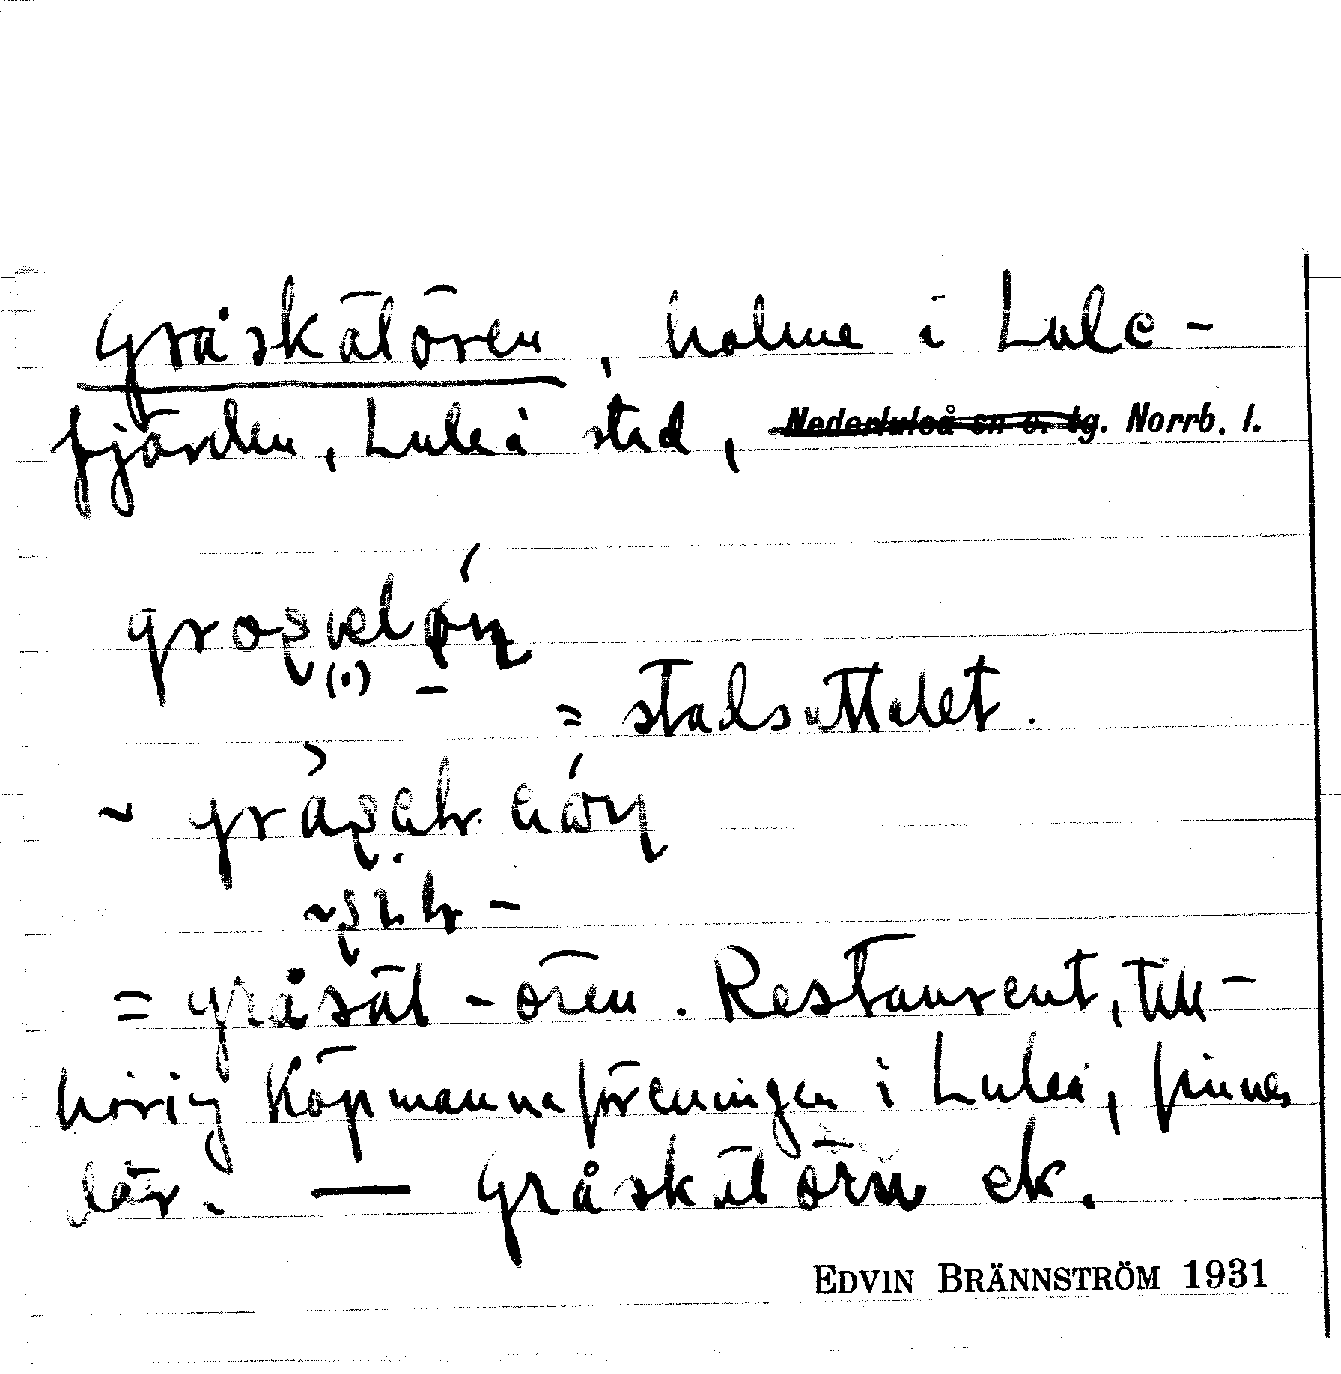 Gråskälören, holme i Lule-
fjärden, Luleå stad, Nederluleå sn o. tg. Norrb. l.
= stadsuttalet.
= gråsäl-ören. Restaurent, till-
hörig Köpmannaföreningen i Luleå, finnes
här. — Gråskälörn ek.
EDVIN BRÄNNSTRÖM 1931